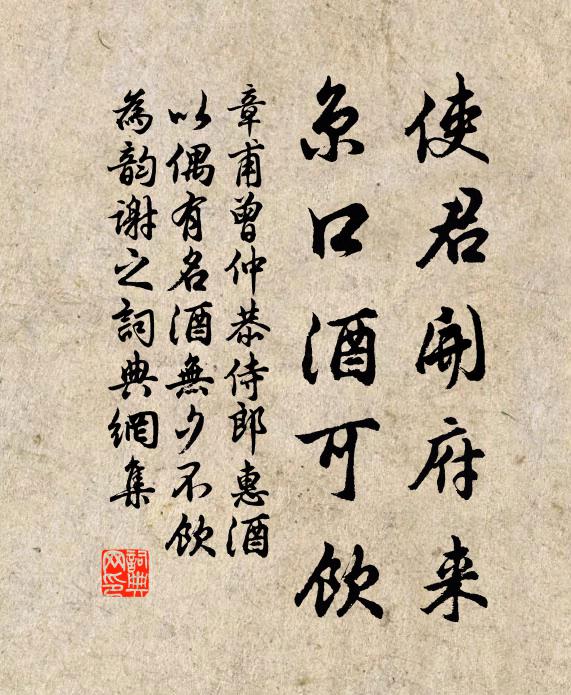 使君開府来
京口酒可飲
章甫曾仲恭侍郎惠酒
以偶有名酒無夕不飲
為韵謝之詞典網集
詞典网印